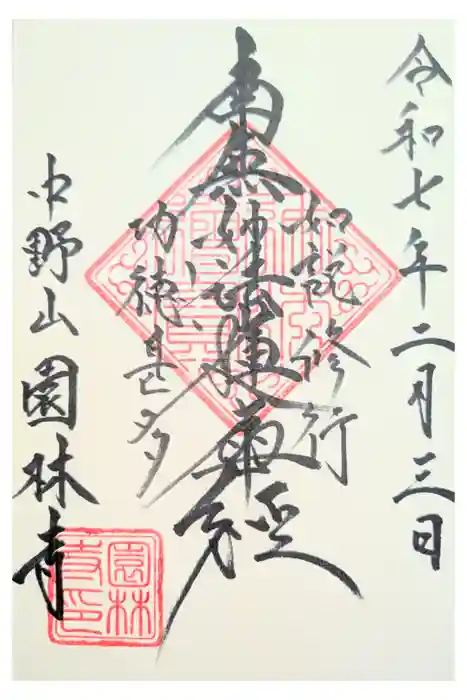 令和七年二月三日
如説修行
南無妙法蓮華経
功徳甚多
中野山園林寺
園林
寺印